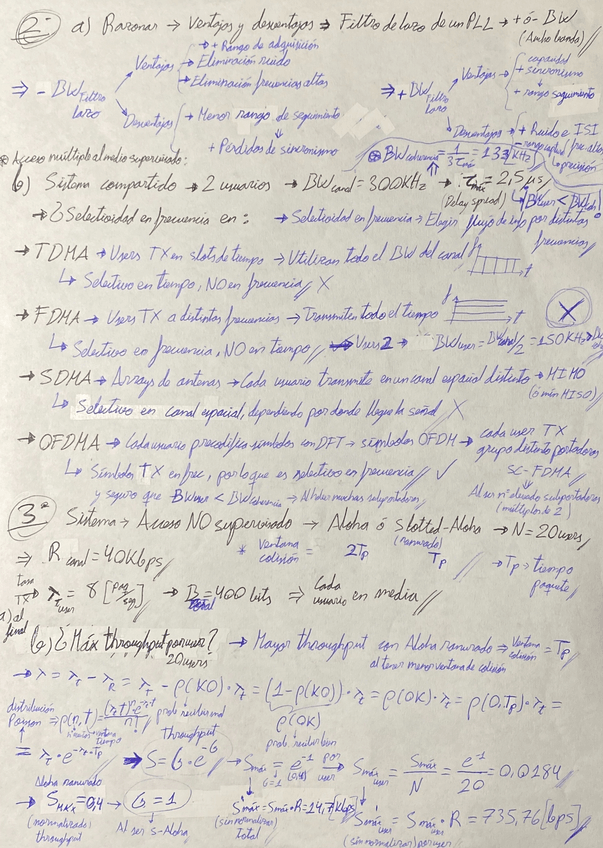 2- a) Razonar → Ventajas y desventajas ⇒ Filtro de lazo de un PLL → + ó - BW
(Ancho banda)
⇒ - BW Filtro lazo
Ventajas
→ + Rango de adquisición
→ Eliminación ruido
→ Eliminación frecuencias altas
Desventajas
→ Menor rango de seguimiento
+ Pérdidas de sincronismo
⇒ + BW Filtro lazo
Ventajas
capacidad
+ sincronismo
+ rango seguimiento
Desventajas → + Ruido e ISI
precisión
* Acceso múltiple al medio supervisado:
BWcoherencia = 1/3τmáx = 133 [KHz]
b) Sistema compartido → 2 usuarios → BWcanal = 300KHz → τmáx = 2,5 μs
(Delay spread)
→ ¿Selectividad en frecuencia en: → Selectividad en frecuencia → Elegir flujo de info por distintas frecuencias
→ TDMA → Users TX en slots de tiempo → Utilizan todo el BW del canal f t
↳ Selectivo en tiempo, NO en frecuencia // X
→ FDMA → Users TX a distintas frecuencias → Transmiten todo el tiempo f t X
↳ Selectivo en frecuencia, NO en tiempo // Users 2 → BWuser = BWcanal/2 = 150KHz >
→ SDMA → Arrays de antenas → Cada usuario transmite en un canal espacial distinto → MIMO
(ó min MISO)
↳ Selectivo en canal espacial, dependiendo por donde llegue la señal X
→ OFDMA → Cada usuario precodifica símbolos con DFT → símbolos OFDM → cada user TX
grupo distinto portadoras
SC-FDMA
↳ Símbolos TX en frec, por lo que es selectivo en frecuencia // ✓
y seguro que BWuser < BWcoherencia → Al haber muchas subportadoras
Al ser nº elevado subportadoras
(múltiplo de 2)
3- Sistema → Acceso NO supervisado → Aloha ó Slotted-Aloha → N = 20 users
(ranurado)
⇒ Rcanal = 40Kbps // * Ventana colisión = 2Tp Tp // → Tp → tiempo paquete
tasa TX → λt user = 8 [paq/seg] → B = 400 bits ⇒ Cada usuario en media //
a) al final
b) ¿Máx throughput por user? → Mayor throughput con Aloha ranurado → Ventana colisión = Tp
20 users
al tener menor ventana de colisión
→ λ = λt - λR = λt - p(KO)·λt = (1-p(KO))·λt = p(OK)·λt = p(0,Tp)·λt =
distribución Poisson ⇒ p(n,t) = (λt)ⁿe^-λt / n!
p(OK)
prob. recibir bien
= λt·e^-λt·Tp → Throughput S = G·e^-G → Smáx = e^-1 por user → Smáx user = Smáx/N = e^-1/20 = 0,0184
G=1
Aloha ranurado
→ SMáx = 0,4 → G = 1
(normalizado) throughput
Al ser S-Aloha
S'máx = Smáx·R = 14,7 [Kbps]
(sin normalizar) total
S'máx user = Smáx user·R = 735,76 [bps]
(sin normalizar) por user